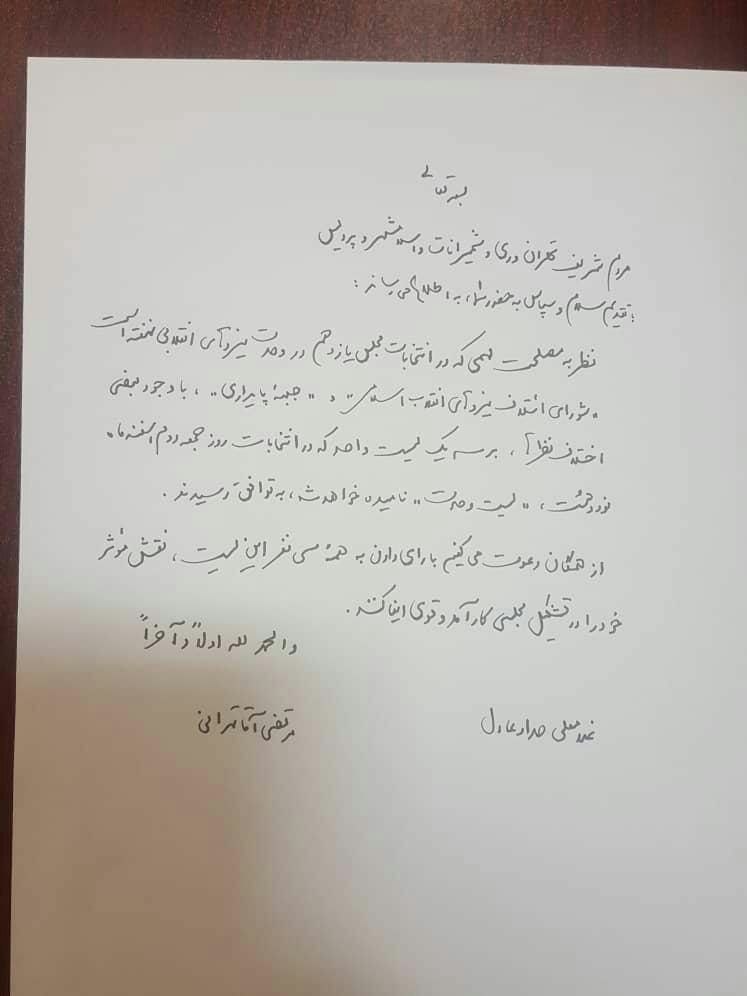 بسمه تعالی
مردم شریف تهران و ری و شمیرانات و اسلامشهر و پردیس
با تقدیم سلام و سپاس به حضور شما، به اطلاع می رساند:
نظر به مصلحت مهمی که در انتخابات مجلس یازدهم در وحدت نیروهای انقلابی نهفته است
«شورای ائتلاف نیروهای انقلاب اسلامی» و «جبههٔ پایداری»، با وجود بعضی
اختلاف نظرها، بر سه یک لیست واحد که در انتخابات روز جمعه دوم اسفندماه
نود و هشت، «لیست وحدت» نامیده خواهد شد، به توافق رسیدند.
از همگان دعوت می کنیم با رای دادن به همهٔ سی نفر این لیست، نقش مؤثر
خود را در تشکیل مجلسی کارآمد و قوی ایفا کنند.
والحمد لله اولاً و آخراً
غلامعلی حداد عادل
مرتضی آقاتهرانی